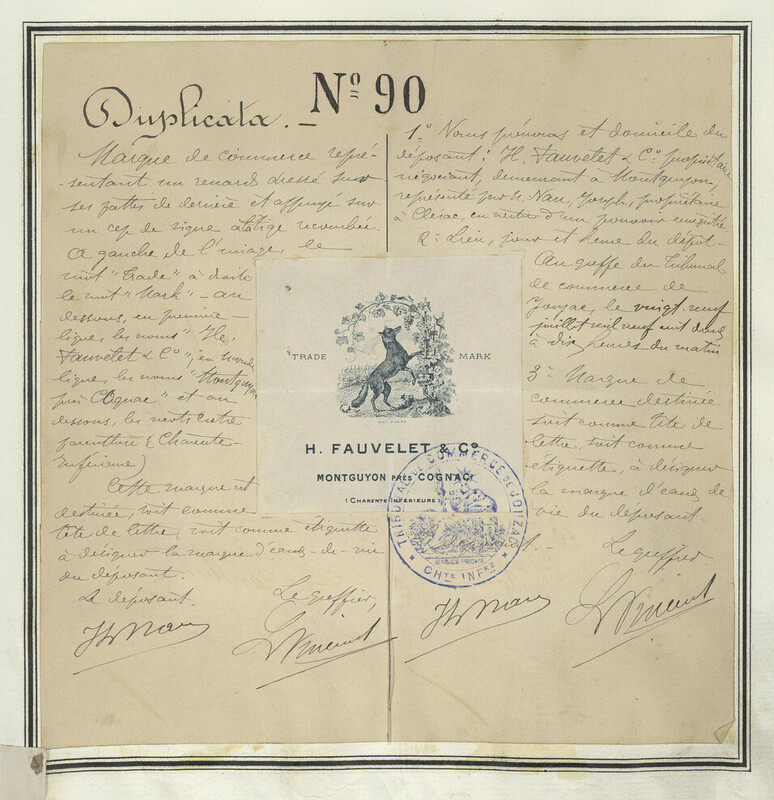 Duplicata. — Nº 90
Marque de commerce repré-
-sentant un renard dressé sur
ses pattes de derrière et affuyé sur
un cep de vigne à tige recourbée.
A gauche de l'image, le
mot "Trade" à droite
le mot "Mark" - au
dessous, en première
ligne, les noms "H.
Fauvelet & Cº", en seconde
ligne, les noms "Montguyon
près Cognac" et au
dessous, les mots entre
parenthèse (Charente-
Inférieure)
Cette marque est
destinée, soit comme
tête de lettre, soit comme étiquette
à désigner la marque d'eaux-de-vie
du déposant.
Le déposant.
Le greffier,
TRADE
MARK
H. FAUVELET & Cº
MONTGUYON PRÈS COGNAC
(CHARENTE INFÉRIEURE)
TRIBUNAL DE COMMERCE DE JONZAC
CHTE INFRE
1º Noms prénoms et domicile du
déposant: H. Fauvelet & Cº propriétaire
négociant, demeurant à Montguyon,
représenté par M. Nau, Joseph, propriétaire
à Clérac, en vertu d'un pouvoir enregistré
2º Lieu, jour et heure du dépôt-
Au greffe du Tribunal
de commerce de
Jonzac, le vingt-neuf
juillet mil neuf cent
à dix heures du matin
3º Marque de
commerce destinée
soit comme tête de
lettre, soit comme
étiquette, à désigner
la marque d'eaux de
vie du déposant
Le greffier